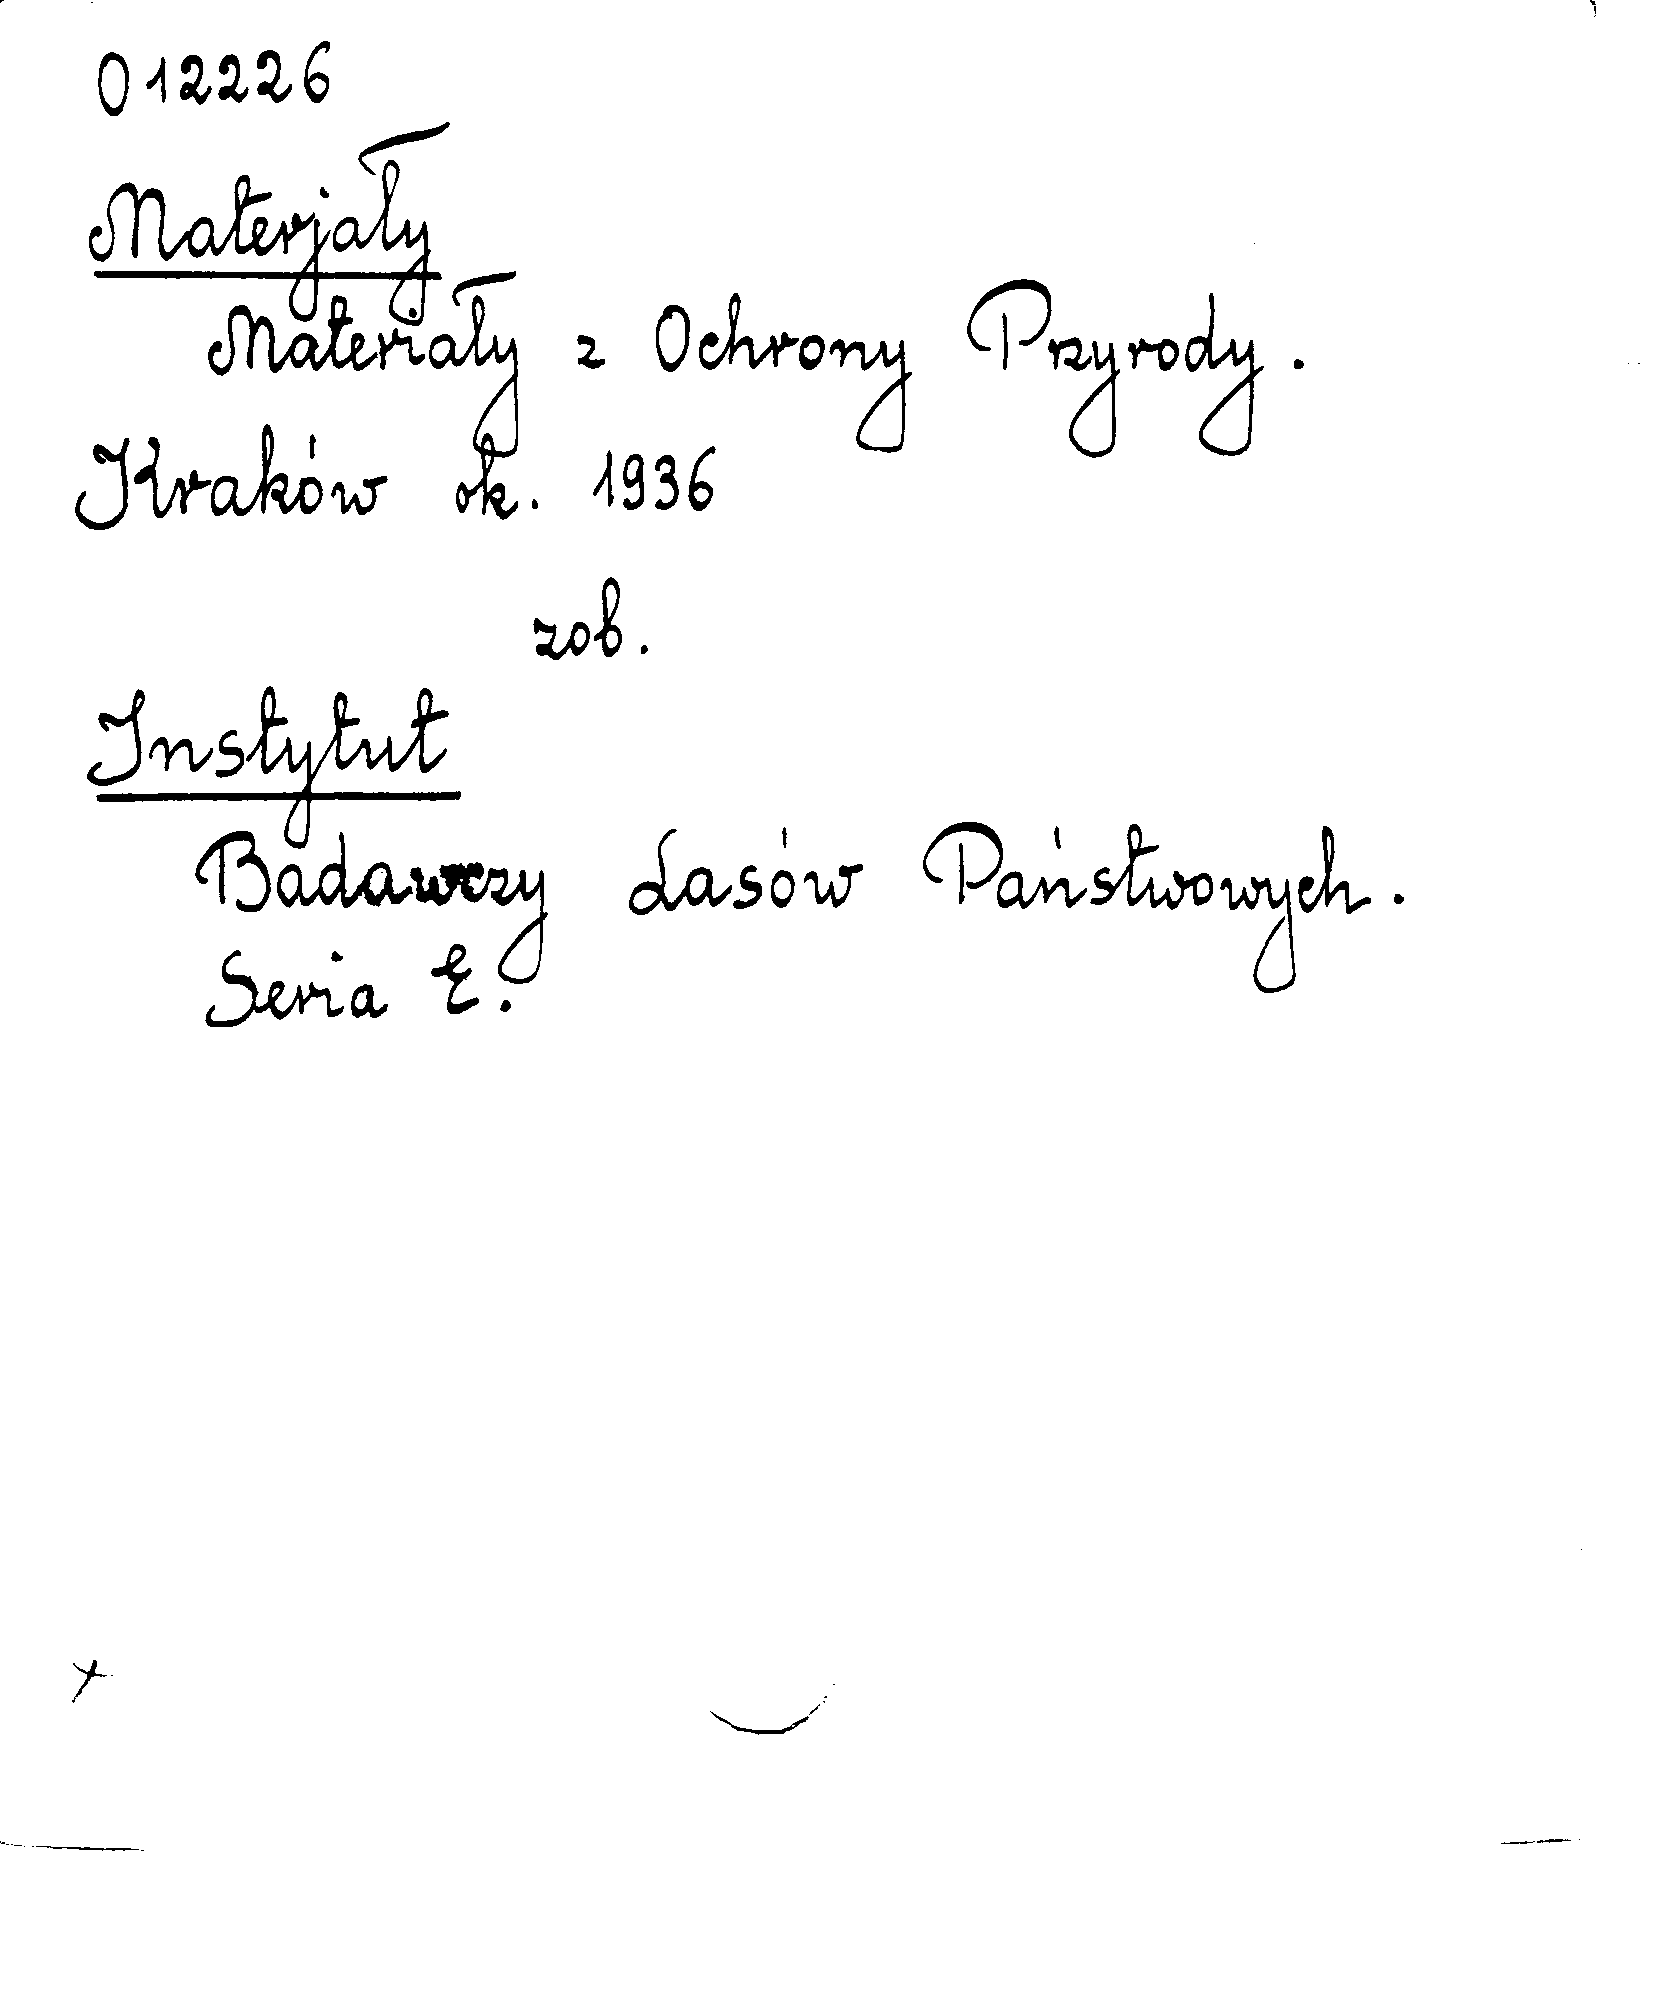 012226
Materjały
Materiały z Ochrony Przyrody.
Kraków ok. 1936
zob.
Instytut
Badawczy Lasów Państwowych.
Seria E.